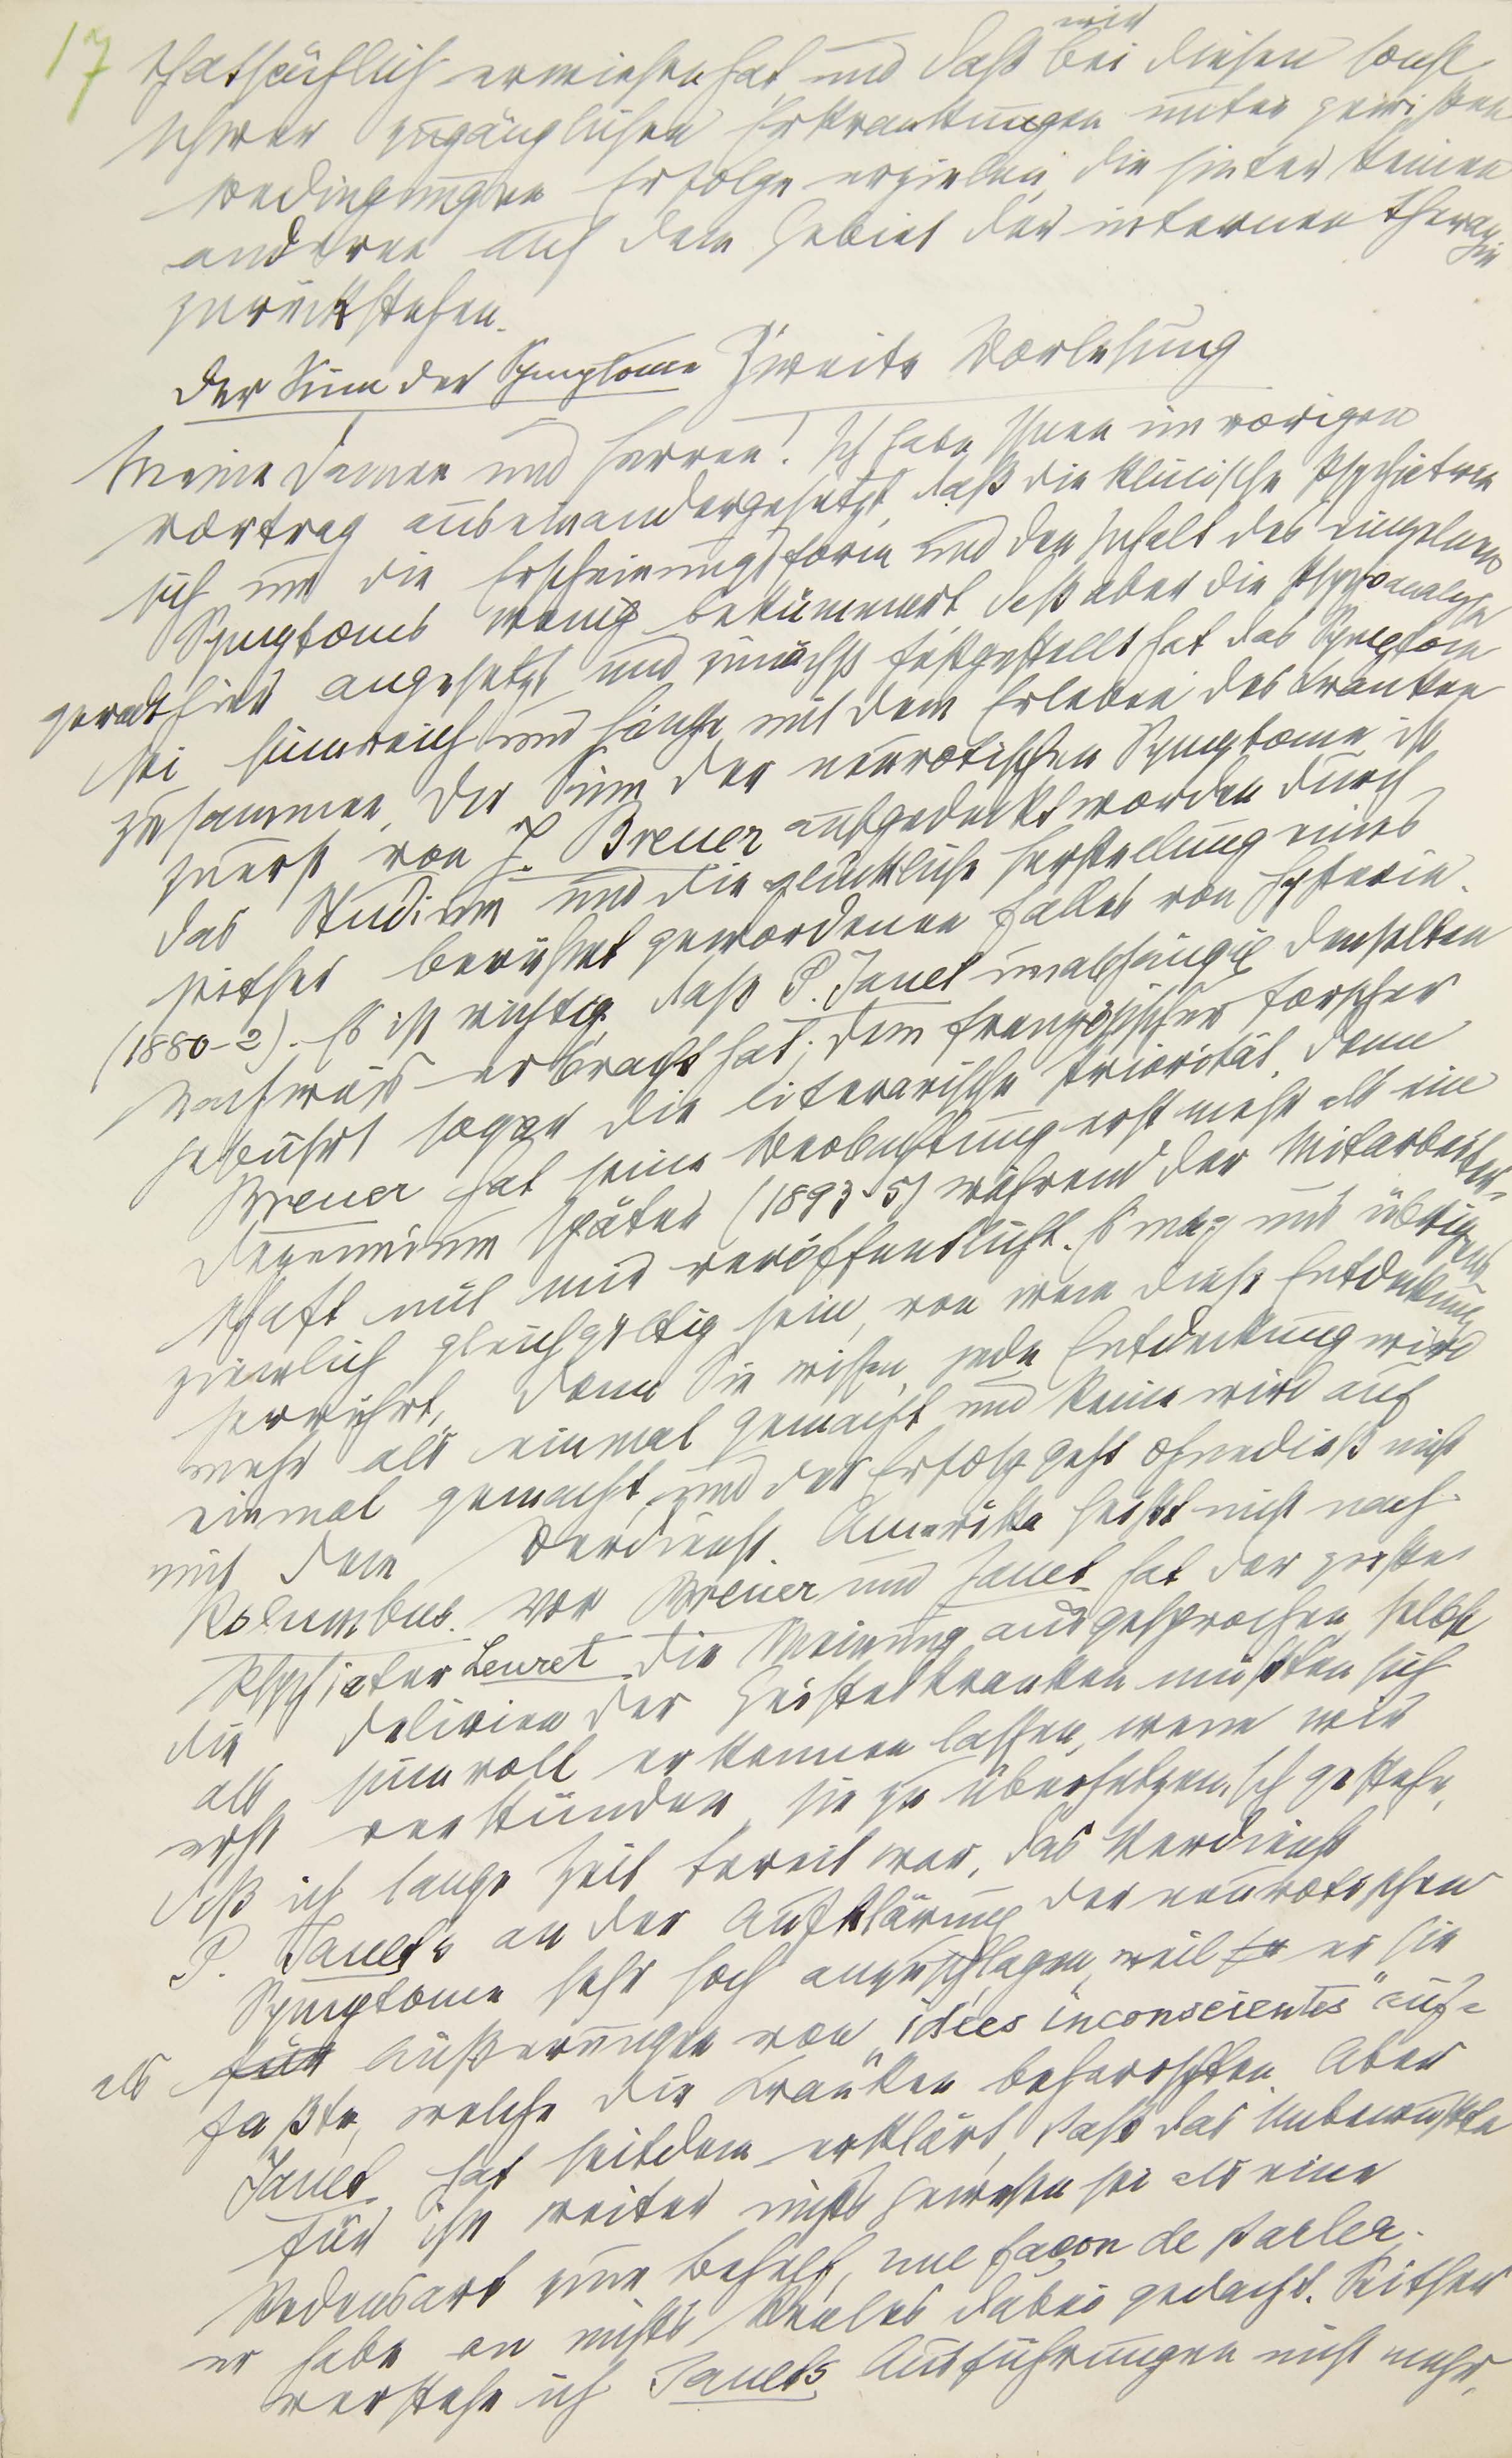 17 thatsächlich erwiesen hat, und daß wir bei diesen sonst
schwer zugänglichen Erkrankungen unter gewissen
Bedingungen Erfolge erzielen, die hinter keinen
anderen auf dem Gebiet der internen Therapie
zurückstehen.
Der Sinn der Symptome Zweite Vorlesung
Meine Damen und Herren! Ich habe Ihnen im vorigen
Vortrag auseinandergesetzt, daß die klinische Psychiatrie
sich um die Erscheinungsform und den Inhalt des einzelnen
Symptoms wenig bekümmert, daß aber die Psychoanalyse
gerade hier angesetzt und zunächst festgestellt hat, das Symptom
sei sinnreich und hänge mit dem Erleben des Kranken
zusammen. Der Sinn der neurotischen Symptome ist
zuerst von J. Breuer aufgedeckt worden durch
das Studium und die glückliche Herstellung eines
seither berühmt gewordenen Falles von Hysterie
(1880-2). Es ist richtig, daß P. Janet unabhängig denselben
Nachweis erbracht hat; dem französischen Forscher
gebührt sogar die literarische Priorität, denn
Breuer hat seine Beobachtung erst mehr als ein
Dezennium später (1893-5) während der Mitarbeiter-
schaft mit mir veröffentlicht. Es mag uns übrigens
ziemlich gleichgiltig sein, von wem diese Entdeckung
herrührt, denn Sie wissen, jede Entdeckung wird
mehr als einmal gemacht und keine wird auf
einmal gemacht, und der Erfolg geht ohnedieß nicht
mit dem Verdienst. Amerika heißt nicht nach
Kolumbus. Vor Breuer und Janet hat der große
Psychiater Leuret die Meinung ausgesprochen, selbst
die Delirien der Geisteskranken müßten sich
als sinnvoll erkennen lassen, wenn wir
erst verstünden, sie zu übersetzen. Ich gestehe,
daß ich lange Zeit bereit war, das Verdienst
P. Janets an der Aufklärung der neurotischen
Symptome sehr hoch anzuschlagen, weil er sie
als für Äußerungen von „idées inconscientes“ auf-
faßte, welche die Kranken beherrschten. Aber
Janet hat seitdem erklärt, daß das Unbewußte
für ihn weiter nichts gewesen sei als eine
Redensart, ein Behelf, une façon de parler;
er habe an nichts Reales dabei gedacht. Seither
verstehe ich Janets Ausführungen nicht mehr,